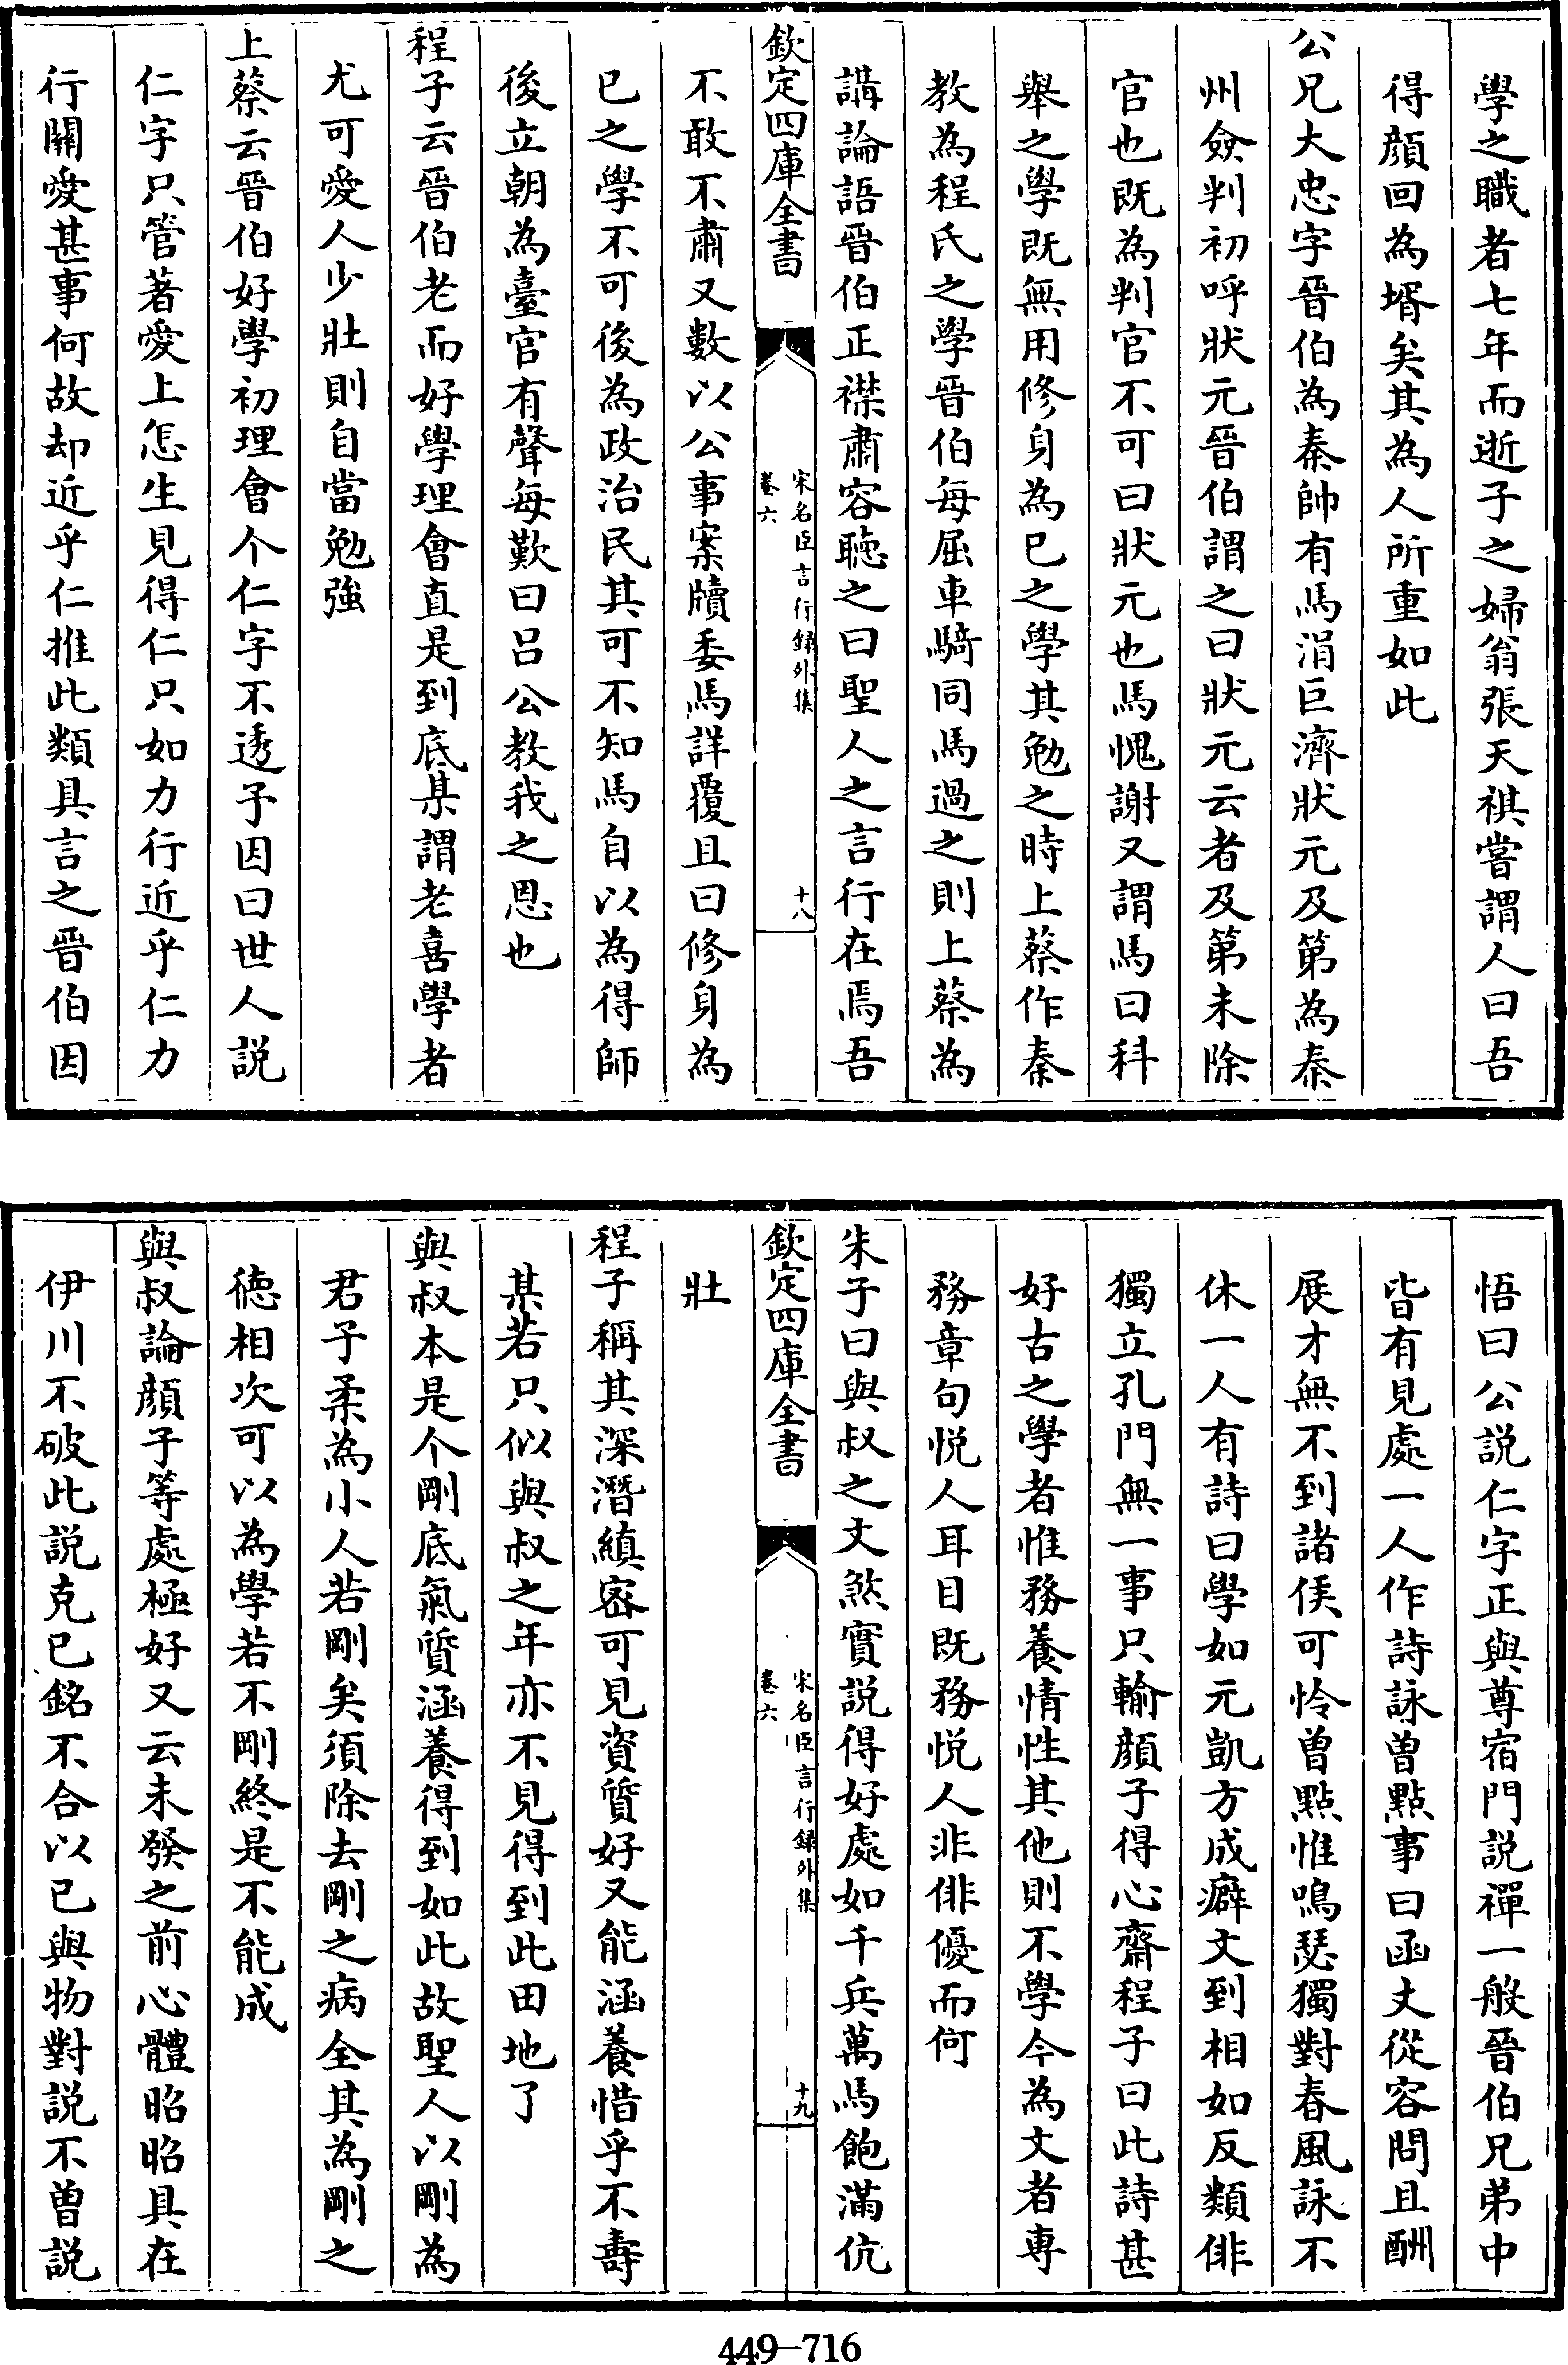 學之職者七年而逝子之婦翁張天祺嘗謂人曰吾
得顔回為壻矣其為人所重如此
公兄大忠字晉伯為秦帥有馬涓巨濟狀元及第為秦
州僉判初呼狀元晉伯謂之曰狀元云者及第未除
官也既為判官不可曰狀元也馬愧謝又謂馬曰科
舉之學既無用修身為已之學其勉之時上蔡作秦
教為程氏之學晉伯每屈車騎同馬過之則上蔡為
講論語晉伯正襟肅容聴之曰聖人之言行在焉吾
欽定四庫全書
宋名臣言行録外集
卷六
十八
不敢不肅又數以公事案牘委馬詳覆且曰修身為
已之學不可後為政治民其可不知馬自以為得師
後立朝為臺官有聲每歎曰吕公教我之恩也
程子云晉伯老而好學理會直是到底某謂老喜學者
尤可愛人少壯則自當勉強
上蔡云晉伯好學初理會个仁字不透予因曰世人説
仁字只管著愛上怎生見得仁只如力行近乎仁力
行關愛甚事何故却近乎仁推此類具言之晉伯因
悟曰公説仁字正與尊宿門説禪一般晉伯兄弟中
皆有見處一人作詩詠曽點事曰函丈從容問且酬
展才無不到諸侯可怜曽點惟鳴瑟獨對春風詠不
休一人有詩曰學如元凱方成癖文到相如反類俳
獨立孔門無一事只輸顔子得心齋程子曰此詩甚
好古之學者惟務養情性其他則不學今為文者専
務章句悦人耳目既務悦人非俳優而何
朱子曰與叔之文煞實説得好處如千兵萬馬飽滿伉
欽定四庫全書
宋名臣言行録外集
卷六
十九
壯
程子稱其深潛縝宻可見資質好又能涵養惜乎不壽
某若只似與叔之年亦不見得到此田地了
與叔本是个剛底氣質涵養得到如此故聖人以剛為
君子柔為小人若剛矣須除去剛之病全其為剛之
徳相次可以為學若不剛終是不能成
與叔論顔子等處極好又云未發之前心體昭昭具在
伊川不破此説克已銘不合以已與物對説不曽説
449-716